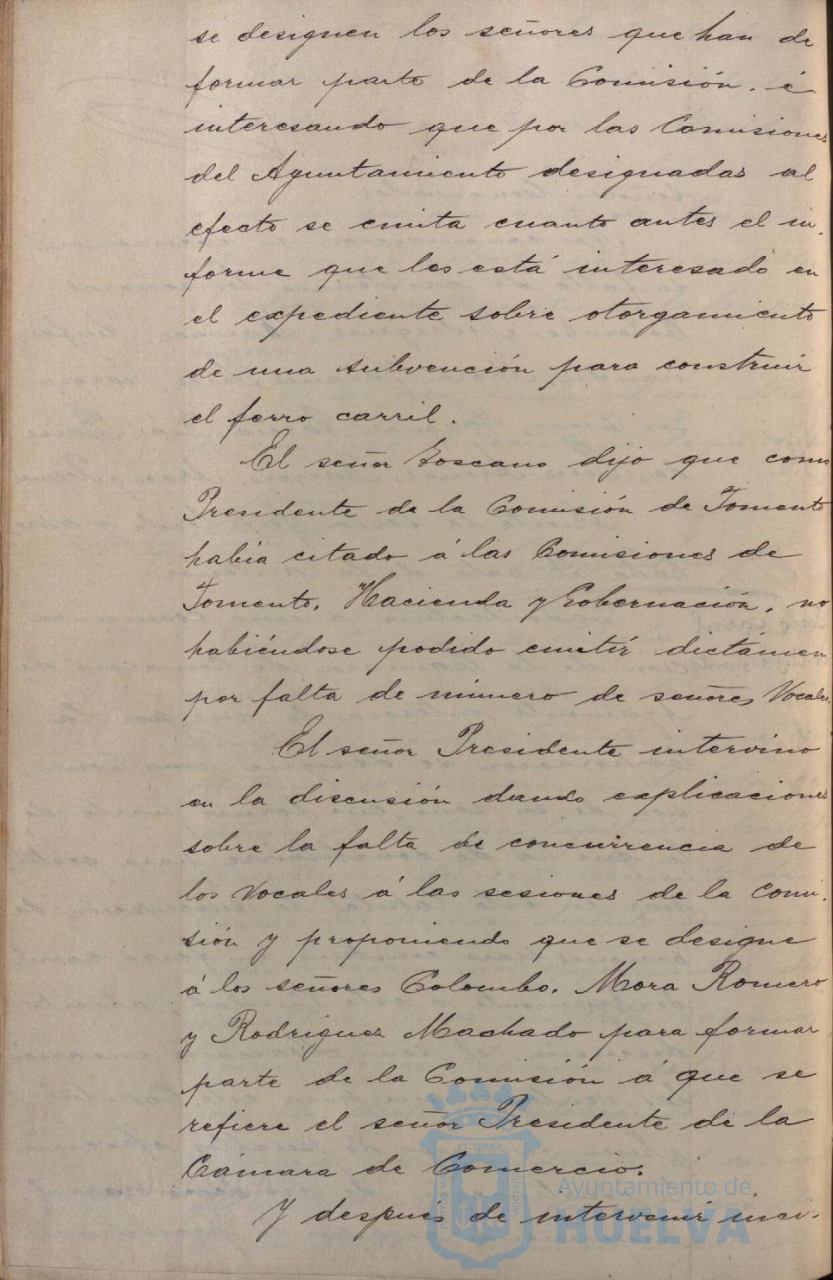 se designen los señores que han de
formar parte de la Comisión. é
interesando que por las Comisiones
del Ayuntamiento designadas al
efecto se emita cuanto antes el in-
forme que les está interesado en
el expediente sobre otorgamiento
de una subvención para construir
el ferro carril.
El señor Toscano dijo que como
Presidente de la Comisión de Fomento
había citado á las Comisiones de
Fomento, Hacienda y Gobernación, no
habiéndose podido emitir dictámen
por falta de número de señores Vocales.
El señor Presidente intervino
en la discusión dando explicaciones
sobre la falta de concurrencia de
los Vocales á las sesiones de la Comi-
sión y proponiendo que se designe
á los señores Colombo, Mora Romero
y Rodriguez Machado para formar
parte de la Comisión á que se
refiere el señor Presidente de la
Cámara de Comercio.
Y después de intervenir inci-
Ayuntamiento de
HUELVA